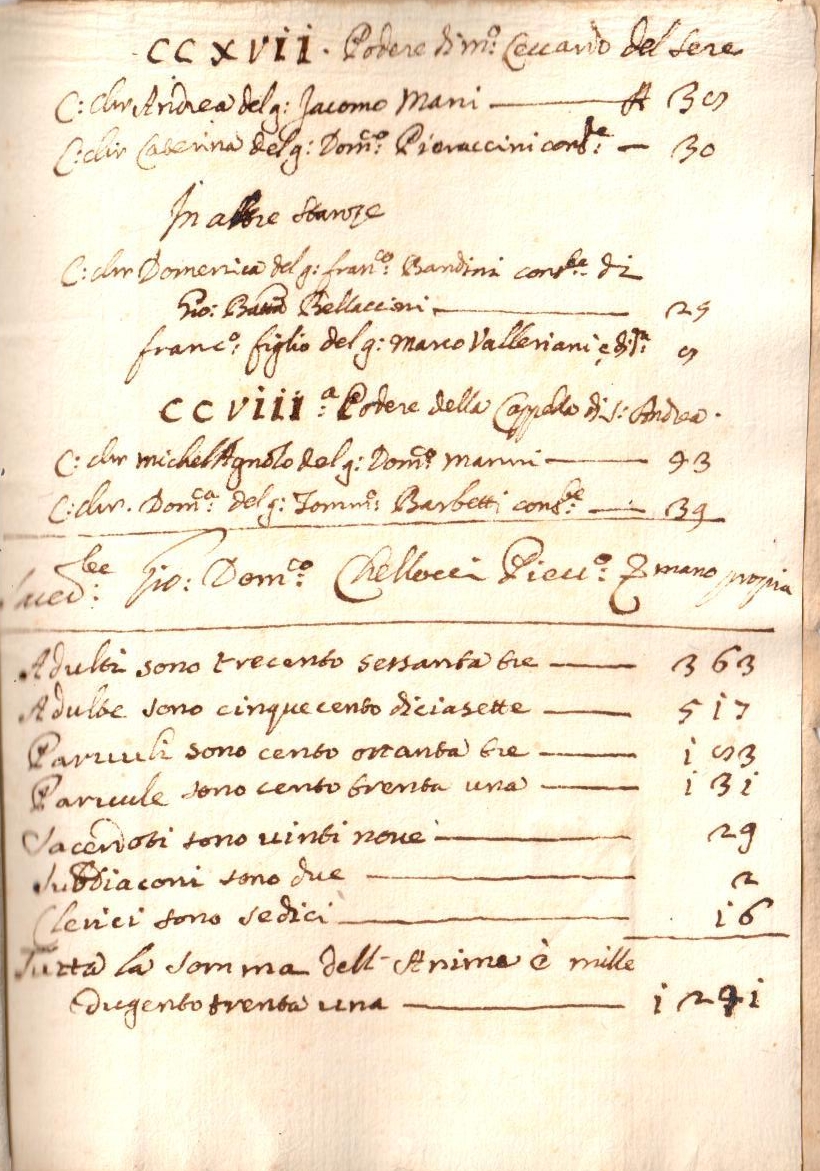 CCXVii. Podere di m.º Ceccardo del Sere
C: chr Andrea del q: Jacomo Mani — A 38
C: chr Caterina del q: Dom.co Pieraccini cons.te — 30
In altre stanze
C: chr Domenica del q: fran.co Bandini cons.te di
Gio: Batta Bellaccini — 25
franc.º figlio del q: Marco Valleriani e di
CCViii.a Podere della Cappella di S: Andrea.
C: chr michelAgnolo del q: Dom.co Marini — 43
C: chr. Dom.ca del q: Tomm.º Barbetti cons.te — 39
Gio: Dom.co Chellocci Piev.º mano propria
Adulti sono trecento sessanta tre — 363
Adulte sono cinquecento diciasette — 517
Parvuli sono cento ottanta tre — i83
Parvule sono cento trenta una — i3i
Sacerdoti sono vinti nove — 29
Subdiaconi sono due — 2
Clerici sono sedici — i6
Tutta la somma dell'Anime è mille
dugento trenta una — i241